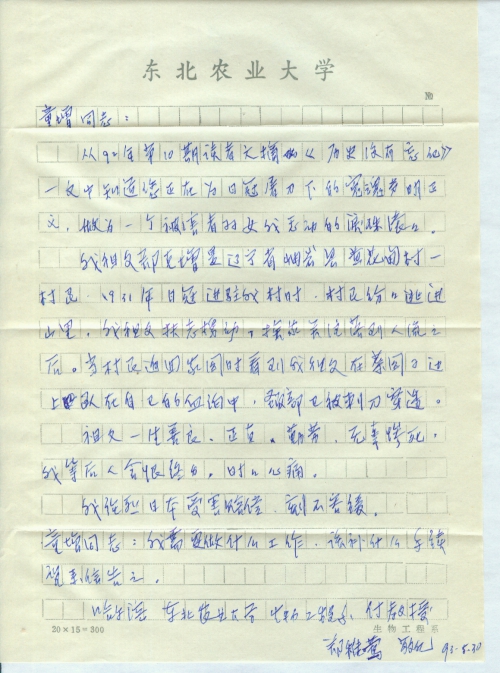 东北农业大学
№
童增同志：
从92年第10期读者文摘的《历史没有忘记》
一文中知道您正在为日冦屠刀下的冤魂争明正
义，做为一个被害者的女我无
我祖父郝 增是辽宁省岫岩县黄花甸村一
村民，1931年日冦进驻我村时，村民纷纷逃进
山里，我祖父扶老携幼， 落到人流之
后。当村民返回家园时看到我祖父在菜园子边
上 卧在自己的血泊中，腹部已被刺刀穿透。
祖父一生善良、正直、勤劳，无辜惨死，
我等后人含恨终日，时时心痛。
我强烈日本受害赔偿，刻不容缓。
童增同志：我需要做什么工作，该补什么手续
祝来信告之。
哈尔滨 东北农业大学 生物工程系 付教授
20×15=300
生物工程系
郝 莺 93.5.30